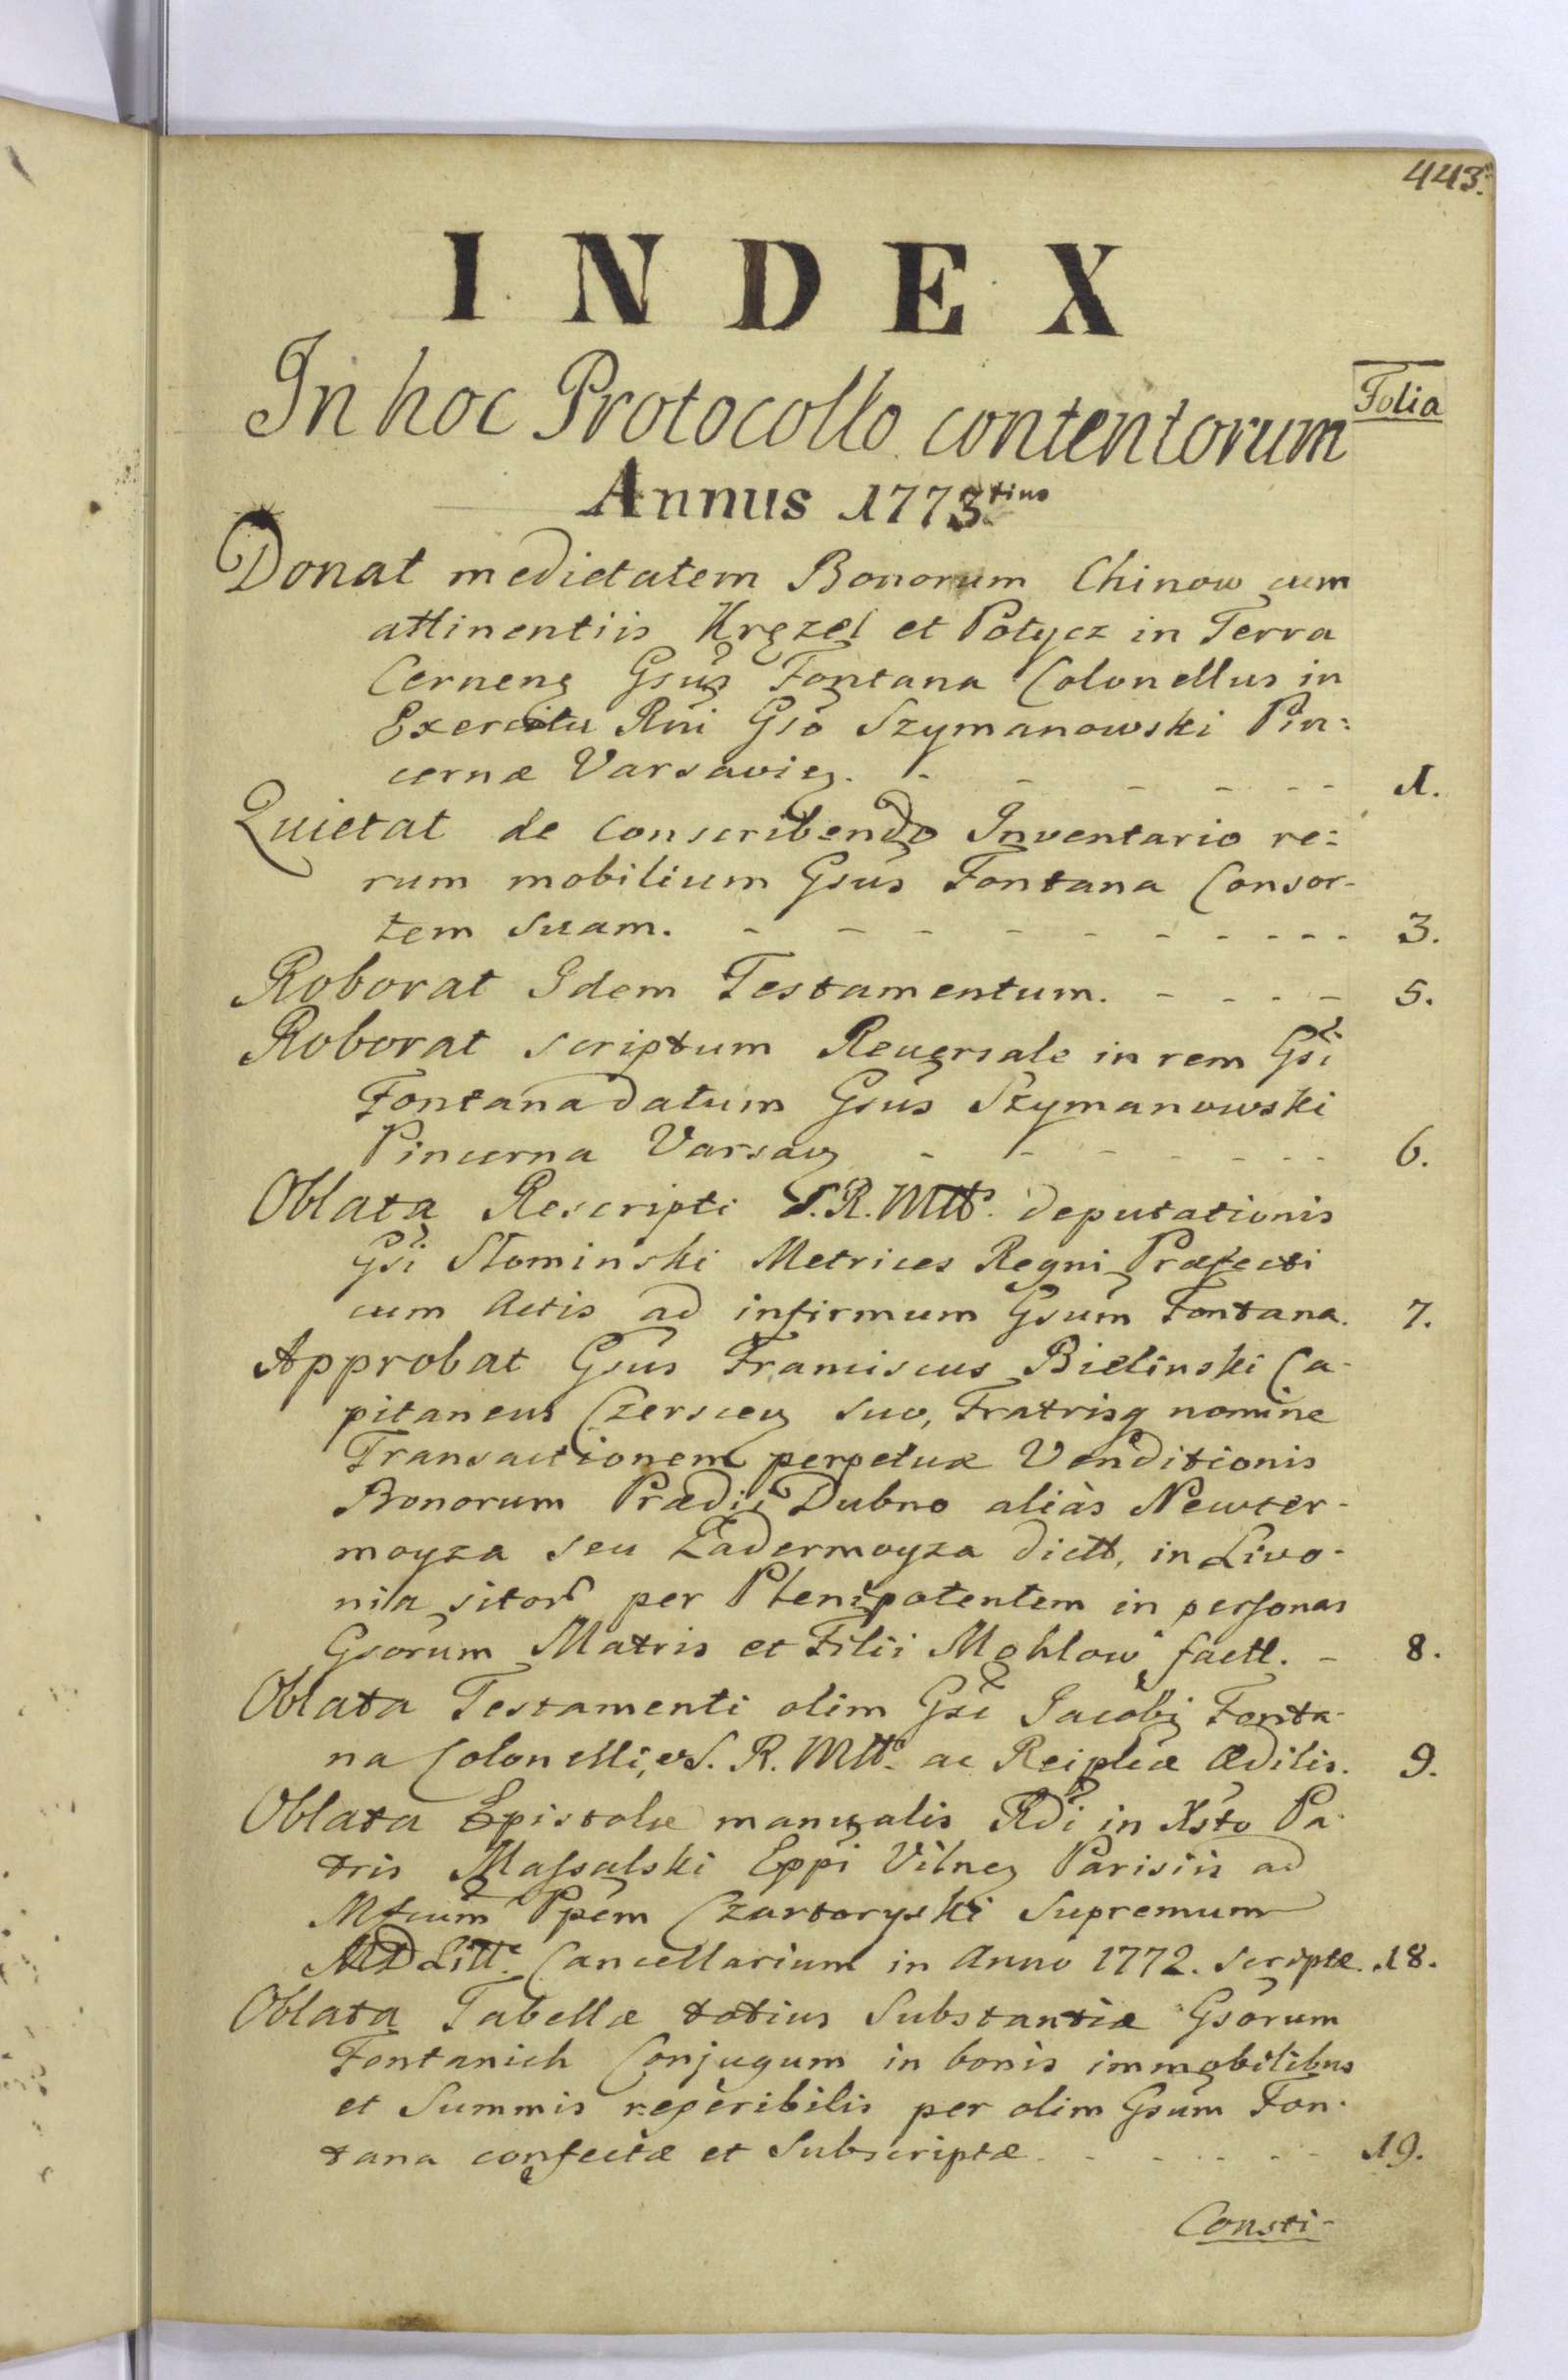 443.
INDEX
In hoc Protocollo contentorum
Folia
Annus 1773tius
Donat medietatem Bonorum Chinow cum
attinentiis Kręzel et Potycz in Terra
Cernens Gsus Fontana Colonellus in
Exercitu Rni Gso Szymanowski Pin:
cernæ Varsavien. - - - - - - 1.
Quietat de conscribendo Inventario re:
rum mobilium Gsus Fontana Consor-
tem suam. - - - - - - - - - - - 3.
Roborat Idem Testamentum. - - - - 5.
Roborat scriptum Reversale in rem Gsi
Fontana datum Gsus Szymanowski
Pincerna Varsav - - - - - - - 6.
Oblata Rescripti S. R. Mtts. deputationis
Gsi Słominski Metrices Regni Præfecti
cum Actis ad infirmum Gsum Fontana. 7.
Approbat Gsus Franciscus Bielinski Ca-
pitaneus Czerscen suo, Fratrisq nomine
Transactionem perpetuæ Venditionis
Bonorum Prædii Dubno aliàs Newter-
moyza seu Zadermoyza dictt, in Livo-
nia sitor per Plenipotentem in personas
Gsorum Matris et Filii Mohlow factt. - 8.
Oblata Testamenti olim Gsi Jacobi Fonta-
na Colonelli, S. R. Mtts. ac Reiplicæ Ædilis. 9.
Oblata Epistolæ manualis Rdi in Xsto Pa-
tris Massalski Eppi Vilnen Parisiis ad
Mfcum Ppem Czartoryski Supremum
MDLitt. Cancellarium in Anno 1772. scriptæ. 18.
Oblata Tabellæ totius Substantiæ Gsorum
Fontanich Conjugum in bonis immobilibus
et Summis reperibilis per olim Gsum Fon-
tana confectæ et Subscriptæ. - - - - - 19.
Consti-